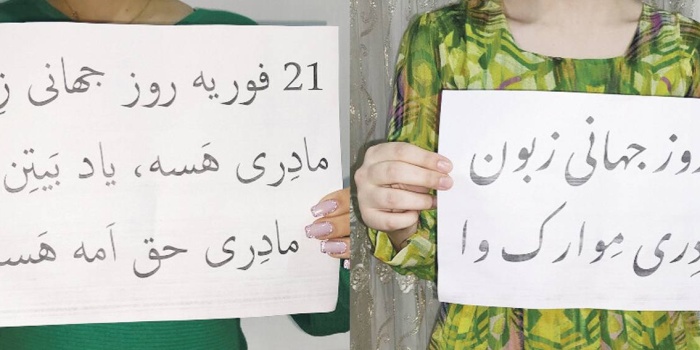 21 فوریه روز جهانی
مادِری هَسه، یاد بَیتِن
مادِری حق اَمه
روز جهانی زبون
مِوارک وا